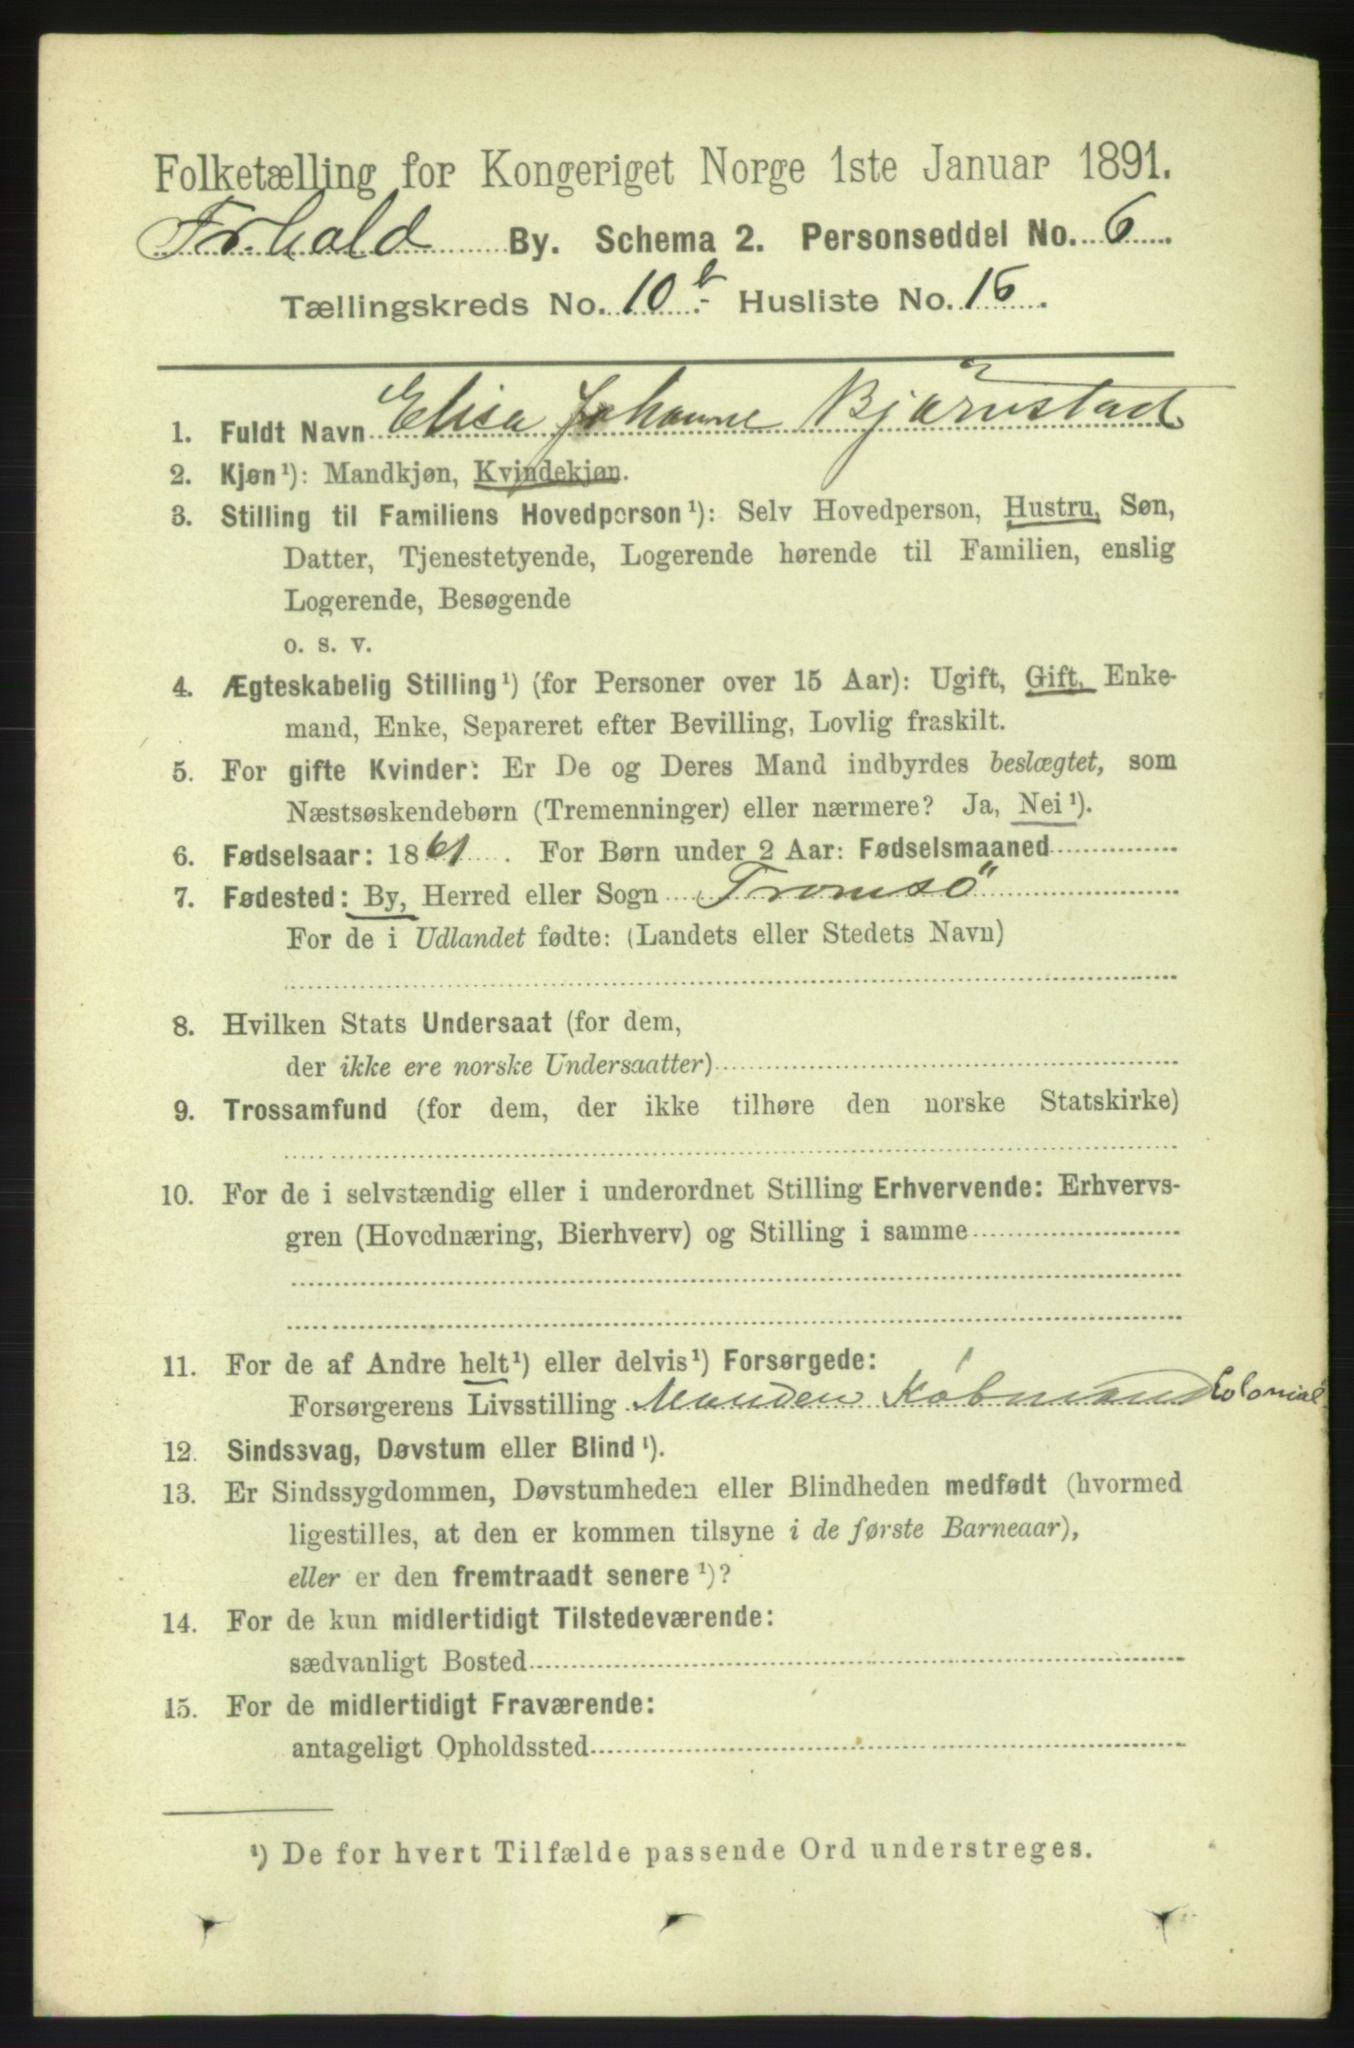 Folketælling for Kongeriget Norge 1ste Januar 1891.
Fr.hald By. Schema 2. Personseddel No. 6.
Tællingskreds No. 10 b. Husliste No. 16.
1. Fuldt Navn Elisa Johanne Bjørnstad
2. Kjøn¹): Mandkjøn, Kvindekjøn.
3. Stilling til Familiens Hovedperson¹): Selv Hovedperson, Hustru, Søn,
Datter, Tjenestetyende, Logerende hørende til Familien, enslig
Logerende, Besøgende
o. s. v.
4. Ægteskabelig Stilling¹) (for Personer over 15 Aar): Ugift, Gift, Enke-
mand, Enke, Separeret efter Bevilling, Lovlig fraskilt.
5. For gifte Kvinder: Er De og Deres Mand indbyrdes beslægtet, som
Næstsøskendebørn (Tremenninger) eller nærmere? Ja, Nei¹).
6. Fødselsaar: 1861. For Børn under 2 Aar: Fødselsmaaned
7. Fødested: By, Herred eller Sogn Tromsö
For de i Udlandet fødte: (Landets eller Stedets Navn)
8. Hvilken Stats Undersaat (for dem,
der ikke ere norske Undersaatter)
9. Trossamfund (for dem, der ikke tilhøre den norske Statskirke)
10. For de i selvstændig eller i underordnet Stilling Erhvervende: Erhvervs-
gren (Hovednæring, Bierhverv) og Stilling i samme
11. For de af Andre helt¹) eller delvis¹) Forsørgede:
Forsørgerens Livsstilling Manden Købmand Kolonial
12. Sindssvag, Døvstum eller Blind¹).
13. Er Sindssygdommen, Døvstumheden eller Blindheden medfødt (hvormed
ligestilles, at den er kommen tilsyne i de første Barneaar),
eller er den fremtraadt senere¹)?
14. For de kun midlertidigt Tilstedeværende:
sædvanligt Bosted
15. For de midlertidigt Fraværende:
antageligt Opholdssted
¹) De for hvert Tilfælde passende Ord understreges.